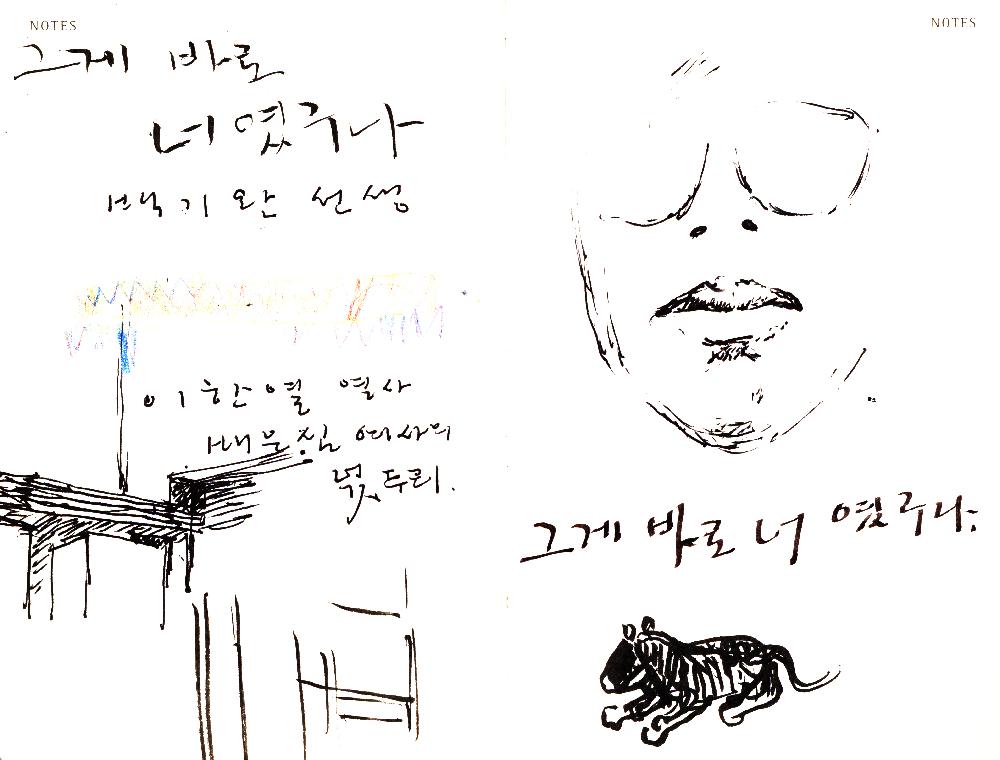 NOTES
그게 바로
너였구나
백기완 선생
이한열 열사
배은심 여사의
넋두리.
NOTES
그게 바로 너 였구나.